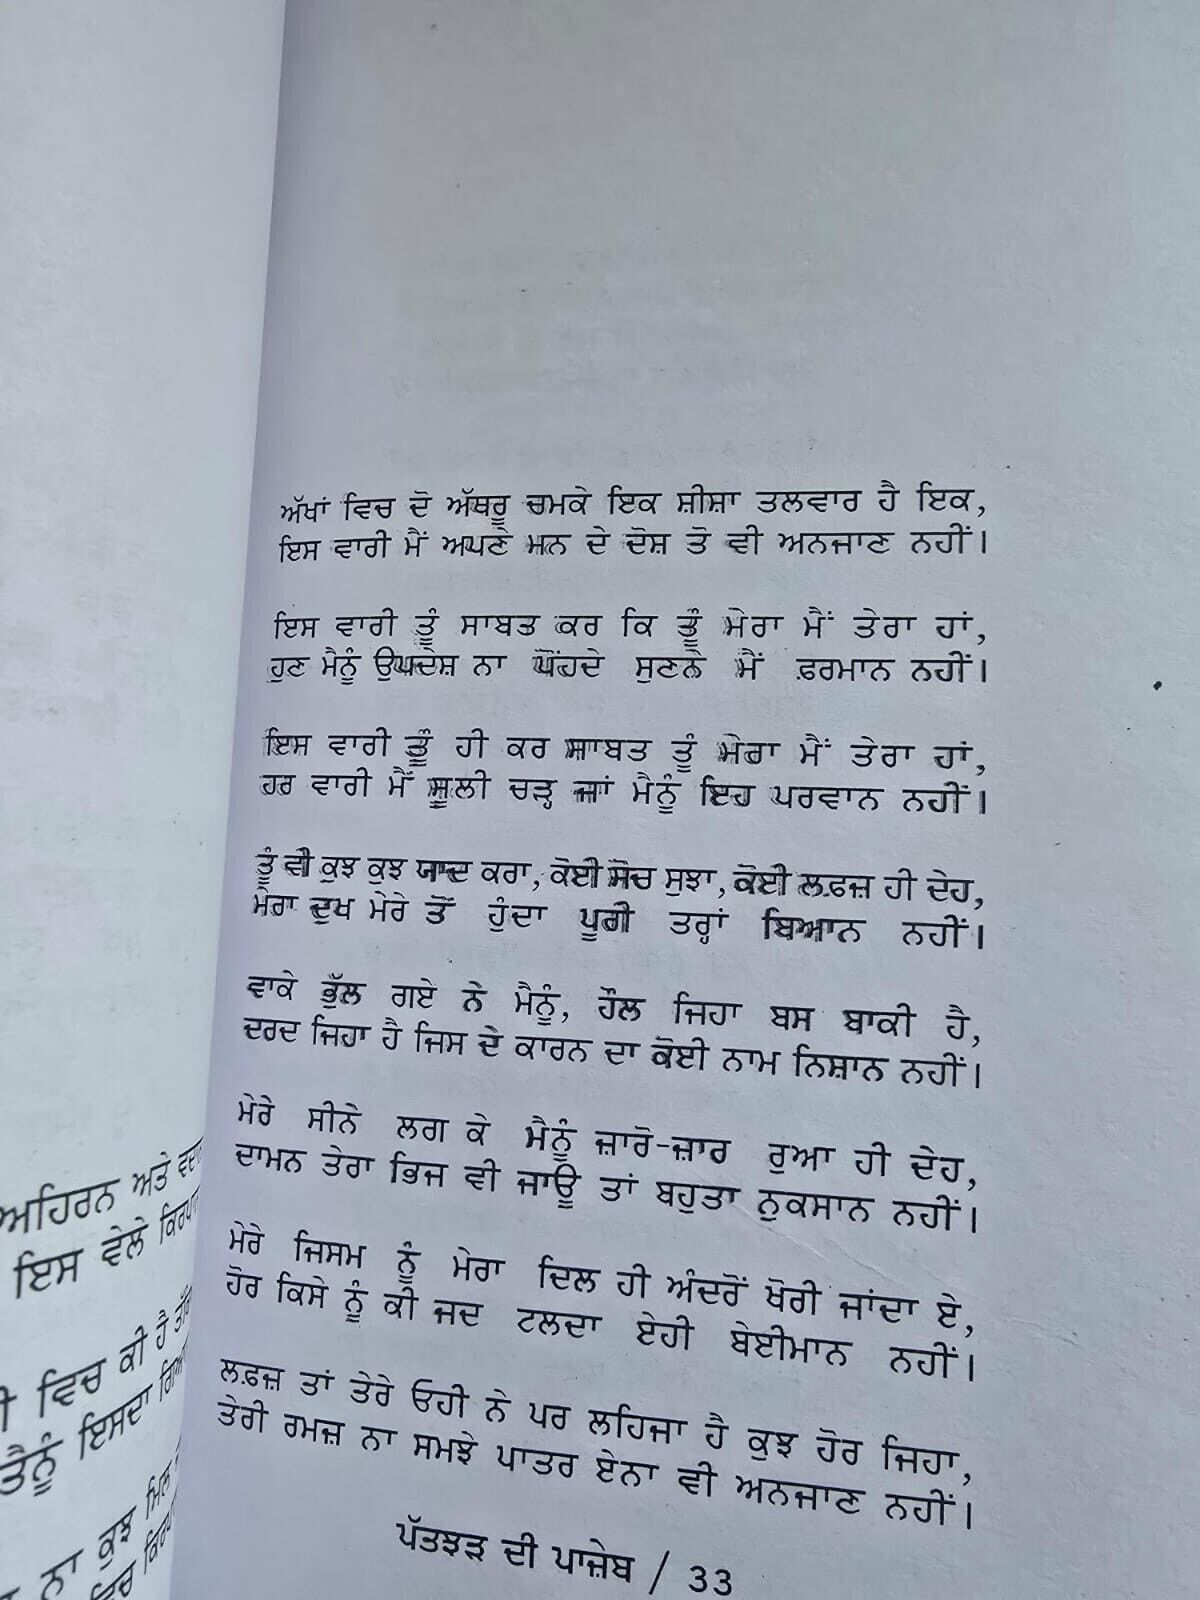 ਅੱਖਾਂ ਵਿਚ ਦੋ ਅੱਥਰੂ ਚਮਕੇ ਇਕ ਸ਼ੀਸ਼ਾ ਤਲਵਾਰ ਹੈ ਇਕ,
ਇਸ ਵਾਰੀ ਮੈਂ ਅਪਣੇ ਮਨ ਦੇ ਦੋਸ਼ ਤੋ ਵੀ ਅਨਜਾਣ ਨਹੀਂ।
ਇਸ ਵਾਰੀ ਤੂੰ ਸਾਬਤ ਕਰ ਕਿ ਤੂੰ ਮੇਰਾ ਮੈਂ ਤੇਰਾ ਹਾਂ,
ਹੁਣ ਮੈਨੂੰ ਉਪਦੇਸ਼ ਨਾ ਪੌਂਹਦੇ ਸੁਣਨੇ ਮੈਂ ਫ਼ਰਮਾਨ ਨਹੀਂ।
ਇਸ ਵਾਰੀ ਤੂੰ ਹੀ ਕਰ ਸਾਬਤ ਤੂੰ ਮੇਰਾ ਮੈਂ ਤੇਰਾ ਹਾਂ,
ਹਰ ਵਾਰੀ ਮੈਂ ਸੂਲੀ ਚੜ੍ਹ ਜਾਂ ਮੈਨੂੰ ਇਹ ਪਰਵਾਨ ਨਹੀਂ।
ਤੂੰ ਵੀ ਕੁਝ ਕੁਝ ਯਾਦ ਕਰਾ, ਕੋਈ ਸੋਚ ਸੁਝਾ, ਕੋਈ ਲਫ਼ਜ਼ ਹੀ ਦੇਹ,
ਮੇਰਾ ਦੁਖ ਮੇਰੇ ਤੋਂ ਹੁੰਦਾ ਪੂਰੀ ਤਰ੍ਹਾਂ ਬਿਆਨ ਨਹੀਂ।
ਵਾਕੇ ਭੁੱਲ ਗਏ ਨੇ ਮੈਨੂੰ, ਹੌਲ ਜਿਹਾ ਬਸ ਬਾਕੀ ਹੈ,
ਦਰਦ ਜਿਹਾ ਹੈ ਜਿਸ ਦੇ ਕਾਰਨ ਦਾ ਕੋਈ ਨਾਮ ਨਿਸ਼ਾਨ ਨਹੀਂ।
ਮੇਰੇ ਸੀਨੇ ਲਗ ਕੇ ਮੈਨੂੰ ਜ਼ਾਰੋ-ਜ਼ਾਰ ਰੁਆ ਹੀ ਦੇਹ,
ਦਾਮਨ ਤੇਰਾ ਭਿਜ ਵੀ ਜਾਊ ਤਾਂ ਬਹੁਤਾ ਨੁਕਸਾਨ ਨਹੀਂ।
ਮੇਰੇ ਜਿਸਮ ਨੂੰ ਮੇਰਾ ਦਿਲ ਹੀ ਅੰਦਰੋਂ ਖੋਰੀ ਜਾਂਦਾ ਏ,
ਹੋਰ ਕਿਸੇ ਨੂੰ ਕੀ ਜਦ ਟਲਦਾ ਏਹੀ ਬੇਈਮਾਨ ਨਹੀਂ।
ਲਫ਼ਜ਼ ਤਾਂ ਤੇਰੇ ਓਹੀ ਨੇ ਪਰ ਲਹਿਜਾ ਹੈ ਕੁਝ ਹੋਰ ਜਿਹਾ,
ਤੇਰੀ ਰਮਜ਼ ਨਾ ਸਮਝੇ ਪਾਤਰ ਏਨਾ ਵੀ ਅਨਜਾਣ ਨਹੀਂ।
ਪੱਤਝੜ ਦੀ ਪਾਜ਼ੇਬ / 33
ਅਹਿਰਨ ਅਤੇ
ਇਸ ਵੇਲੇ
ਵਿਚ ਕੀ ਹੈ
ਤੈਨੂੰ ਇਸਦਾ
ਨਾ ਕੁਝ ਮਿਲ